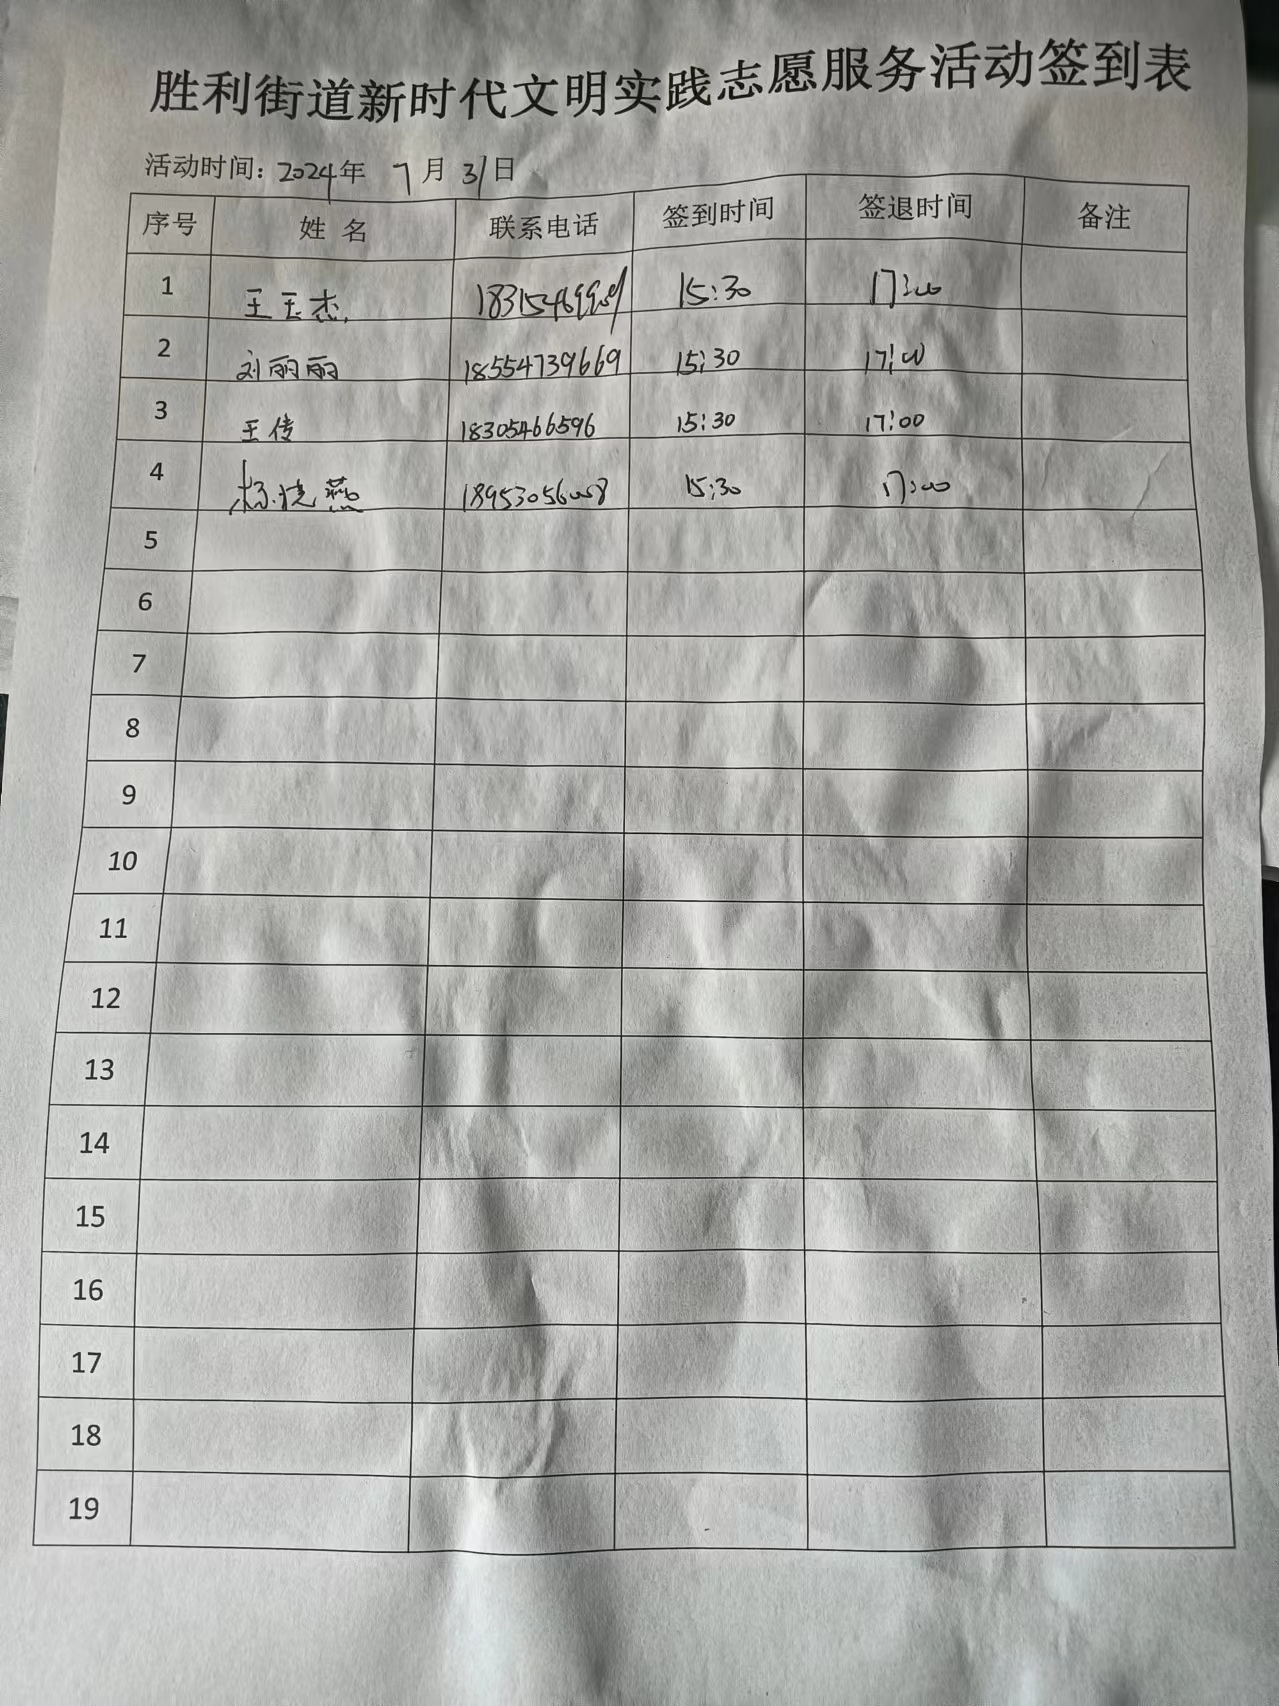 胜利街道新时代文明实践志愿服务活动签到表
活动时间：2024年 7月31日
序号 姓 名 联系电话 签到时间 签退时间 备注
1 王玉杰 15:30 17:00
2 刘丽丽 18554739669 15:30 17:00
3 王传 18305466596 15:30 17:00
4 杨晓燕 18953056008 15:30 17:00
5
6
7
8
9
10
11
12
13
14
15
16
17
18
19